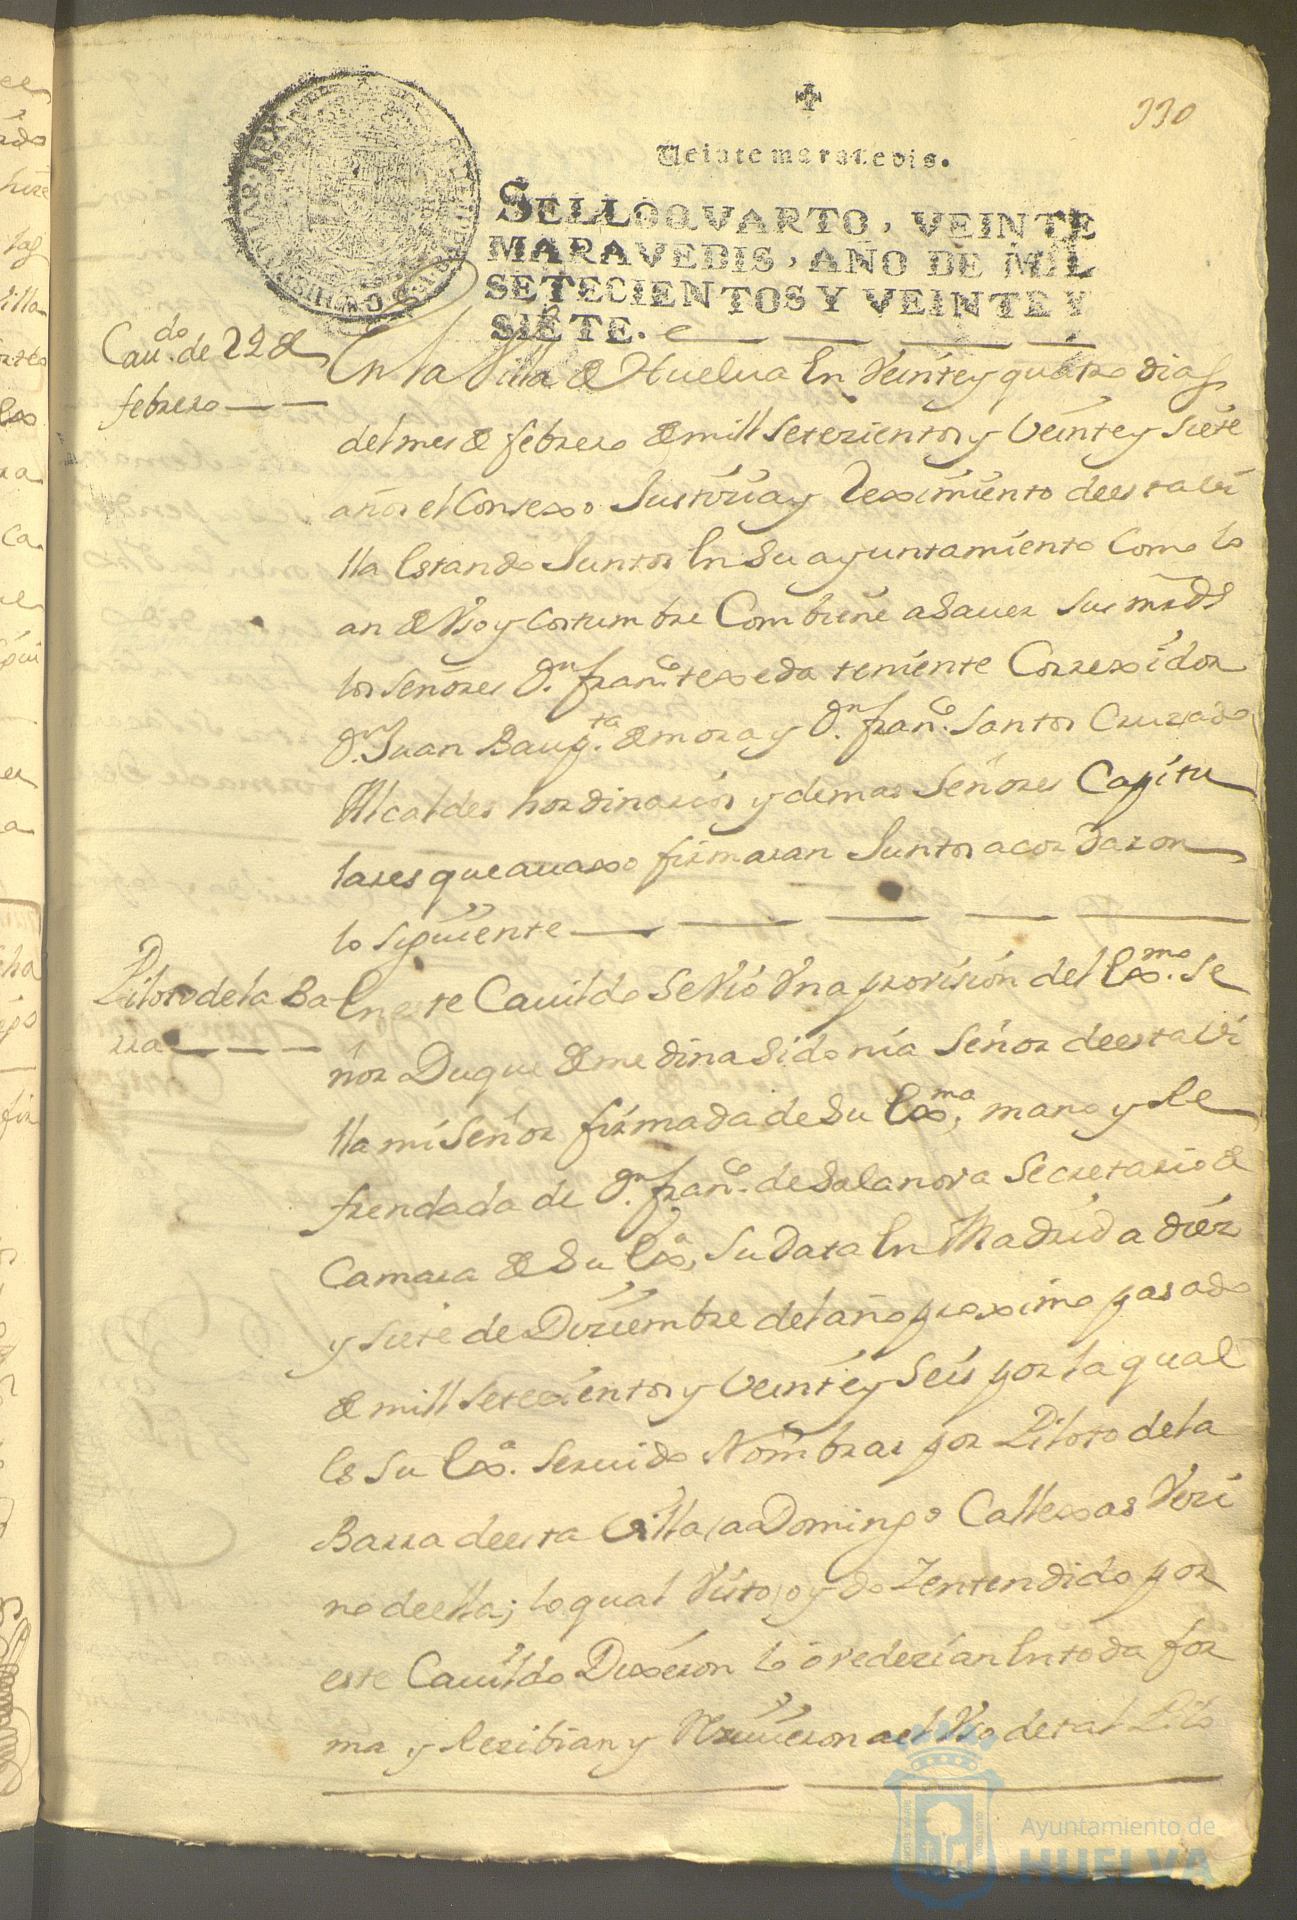 330
Veinte maravedis.
SELLO QVARTO, VEINTE
MARAVEDIS, AÑO DE MIL
SETECIENTOS Y VEINTE Y
SIETE.
Caudo. de 22 de
febrero
En la Villa de Huelua En Veinte y quatro dias
del mes de febrero de mill setezientos y Veinte y siete
años el Consexo Justizia y Reximiento de esta Vi
lla Estando Juntos En su ayuntamiento Como lo
an de Vso y costumbre Combiene a sauer sus mrds
los señores Dn. franco. texeda teniente Correxidor
Dn. Juan Baupta. de mora y Dn. franco. Santos Cruzado
Alcaldes hordinarios y demas Señores Capitu
lares que auaxo firmaran Juntos acordaron
lo siguiente
Piloto de la Ba
rra
En este Cauildo se Vio Vna provision del Exmo. Se
ñor Duque de medina Sidonia Señor de esta Vi
lla mi Señor firmada de su Exma. mano y Re
frendada de Dn. franco. de Salanova Secretario de
Camara de Su Exa. su Data En Madrid a diez
y siete de Diziembre del año proximo pasado
de mill setecientos y Veinte y Seis por la qual
Es Su Exa. seruido Nombrar por Piloto de la
Barra de esta Villa a Domingo Callexas Vezi
no de ella; lo qual Visto oydo Y entendido por
este Cauildo Dixeron lo ovedezian En toda for
ma y Rezibian y Rezivieron a el Vso de tal Pilo
Ayuntamiento de
HUELVA